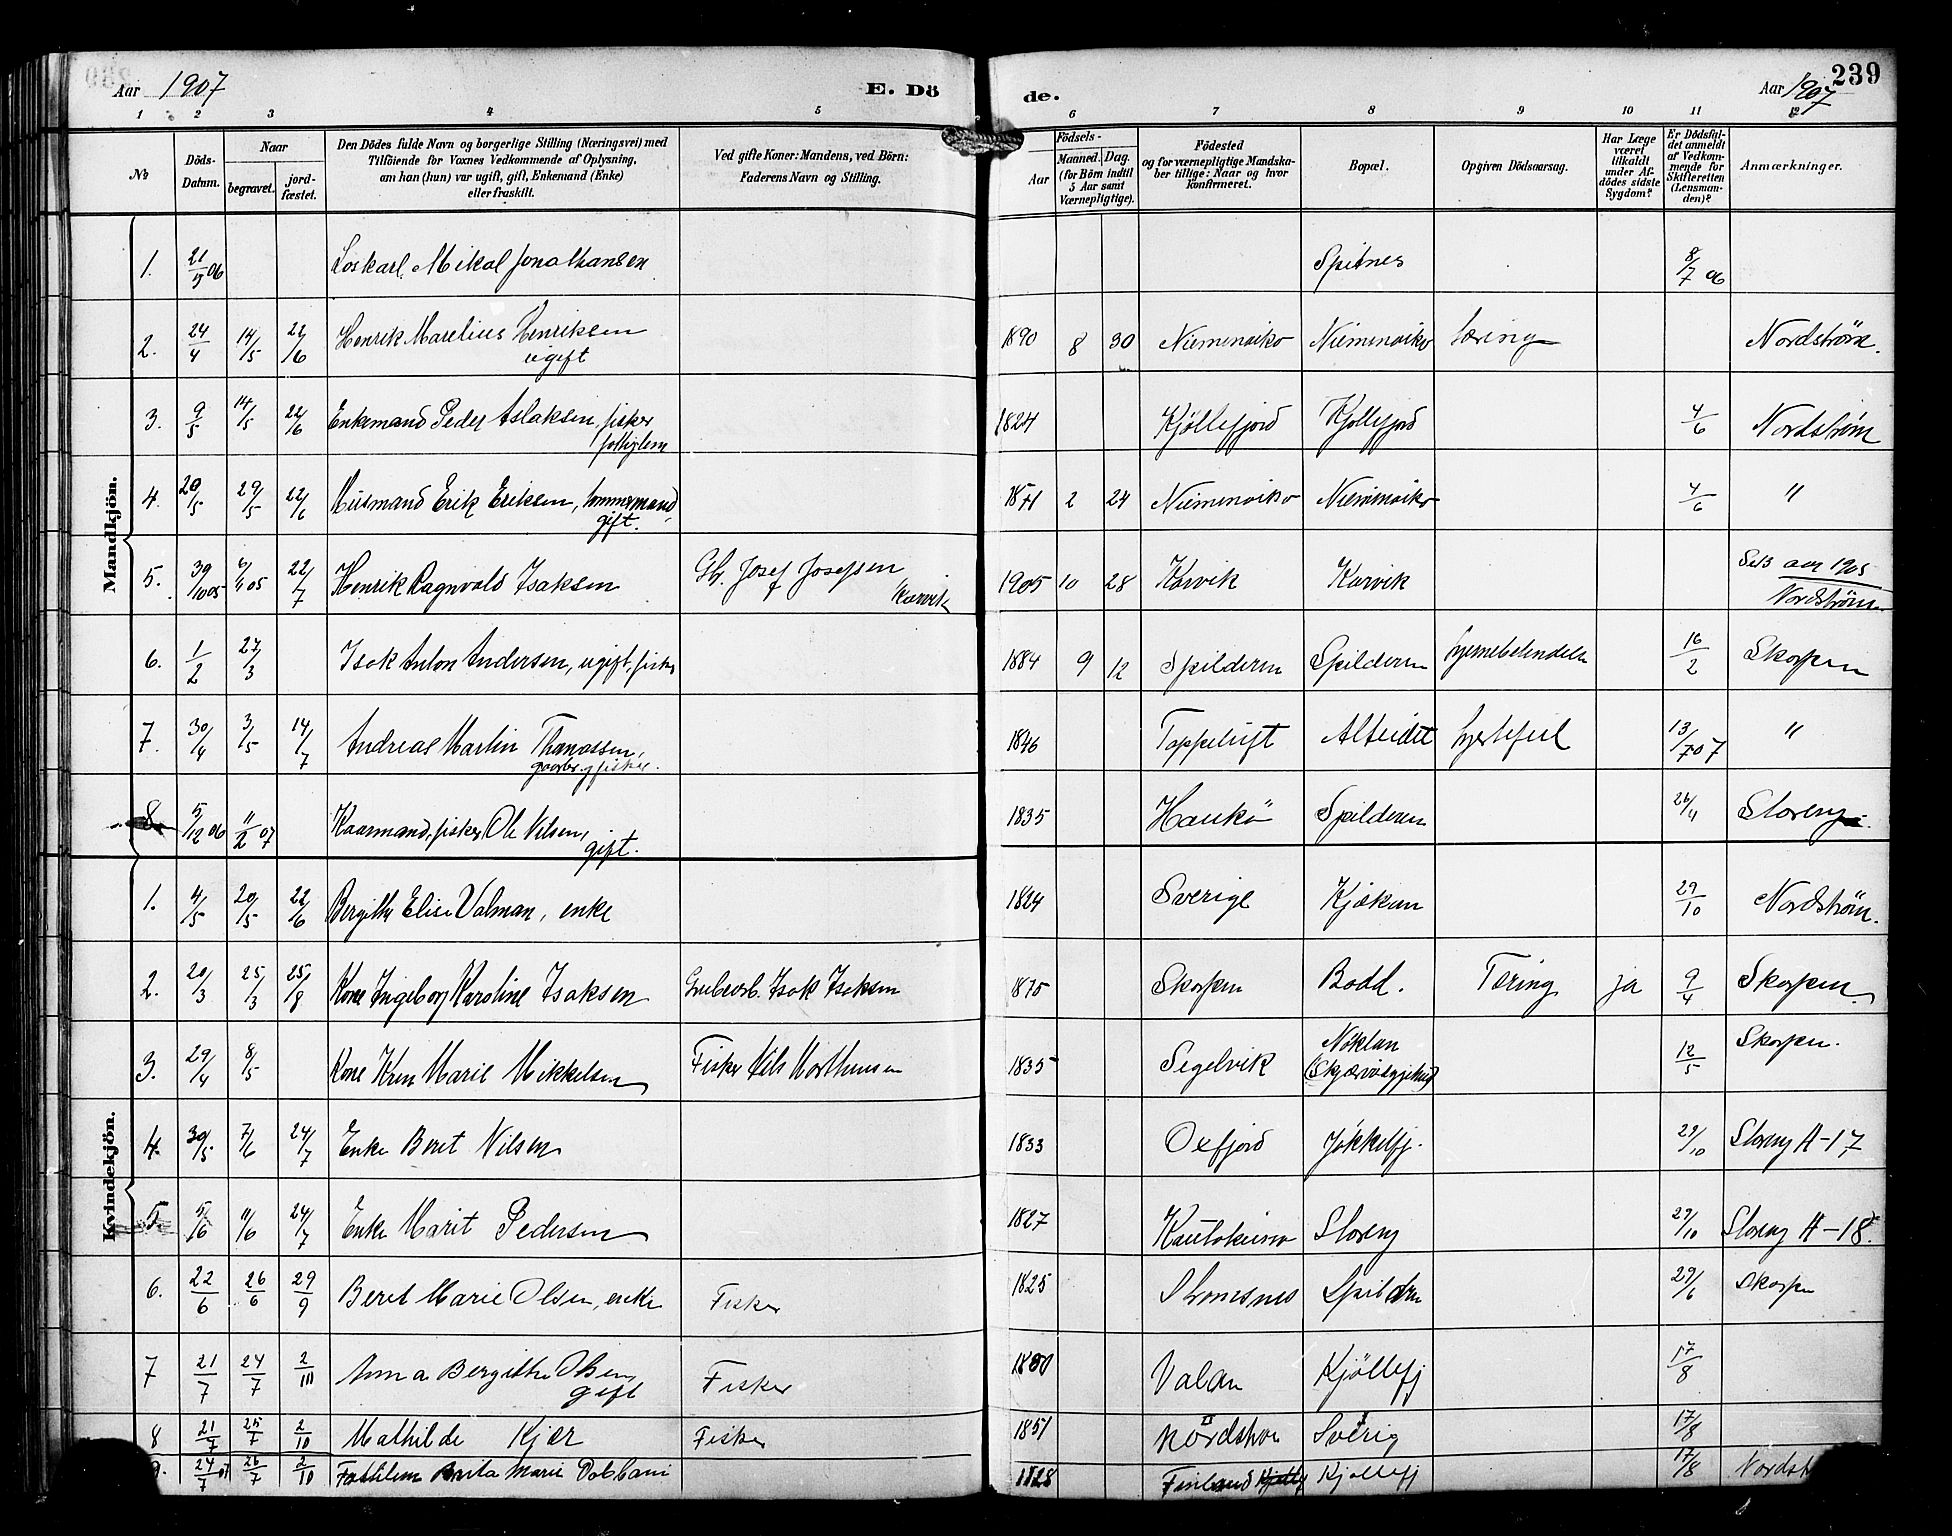 Aar 1907 E. Dö de. Aar 1907 239
1 2 3 4 5 6 7 8 9 10 11 12
No
Döds-Datum.
Naar
begravet.
jordfæstet.
Den Dödes fulde Navn og borgerlige Stilling (Næringsvei) med
Tilföiende for Voxnes Vedkommende af Oplysning,
om han (hun) var ugift, gift, Enkemand (Enke)
eller fraskilt.
Ved gifte Koner: Mandens, ved Börn:
Faderens Navn og Stilling.
Födsels-
Aar
Maaned. Dag.
(for Börn indtil
5 Aar samt
Værnepligtige).
Födested
og for værnepligtige Mandskaber tillige: Naar og hvor
konfirmeret.
Bopæl.
Opgiven Dödsaarsag.
Har Læge
været
tilkaldt
under Afdödes sidste
Sygdom?
Er Dödsfaldet anmeldt
af Vedkommende for
Skifteretten
(Lensmanden)?
Anmærkninger.
Mandkjön.
1. 21/5 06 Loskarl Mikal Jonathansen Spitnes 8/7 06
2. 24/4 14/5 22/6 Henrik Marelius Henriksen 1890 8 30 Niemenaiko Niemenaiko Tæring Nordström.
ugift
3. 9/5 14/5 22/6 Enkemand Peder Aslaksen, fisker 1824 Kjøllefjord Kjøllefjord 4/6 Nordström
fattiglem
4. 20/5 29/5 22/6 Husmand Erik Eriksen, tømmermand, 2 24 Niemenaiko Niemenaiko 4/6 "
gift.
5. 30/10 05 6/11 05 22/7 Henrik Ragnvald Isaksen Gb. Josef Josefsen 1905 10 28 Karvik Karvik aar 1905
Karvik Nordström
6. 1/2 27/3 Isak Anton Andersen, ugift, fisker 1884 9 12 Spilderen Spilderen hjernebetendelse 16/2 Skorpen
7. 30/4 3/5 14/7 Andreas Martin Thomassen, 1846 Toppelbugt Alteidet hjertefeil 13/7 07 "
gaardbr. og fisker.
8. 5/12 06 11/2 07 Kaarmand, fisker Ole Nilsen, 1835 Haukö Spilderen 26/4 Storeng
gift.
Kvindekjön.
1. 4/5 20/5 22/6 Bergithe Elise Valman, enke 1824 Sverige Kjækan 29/10 Nordström.
2. 20/3 25/3 25/8 Kone Ingeborg Karoline Isaksen Grubearb. Isak Isaksen 1875 Skorpen Badd. Tæring ja 9/4 Skorpen.
3. 29/4 8/5 Kone Karen Marie Mikkelsen Fisker Nils Morthensen 1835 Segelvik Nöklan 12/5 Skorpen.
4. 30/5 7/6 24/7 Enke Beret Nilsen 1833 Oxfjord Jøkkelfj. 29/10 Storeng A-17
5. 5/6 11/6 24/7 Enke Marit Pedersen 1827 Kautokeino Storeng 29/10 Storeng A-18.
6. 22/6 26/6 29/9 Beret Marie Olsen, enke Fisker 1825 Stromsnes Spildren 29/6 Skorpen
7 21/7 24/7 2/10 Anna Bergithe Olsen Fisker Valan Kjöllefj 17/8
gift
8 21/7 25/7 2/10 Mathilde Kjær Fisker 1851 Nordstrøm Sverig 17/8
9. 24/7 07 26/7 2/10 Fattilem Anita Marie 1828 Finland Kjøllefj 17/8 Nordst